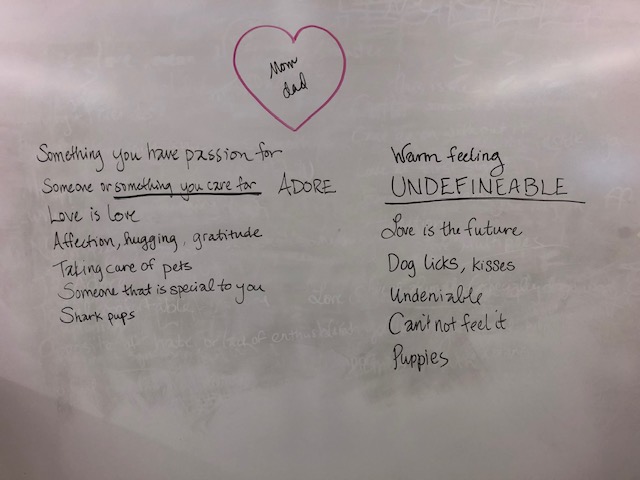 Mom
dad
Something you have passion for
Someone or something you care for ADORE
Love is love
Affection, hugging, gratitude
Taking care of pets
Someone that is special to you
Shark pups
Warm feeling
UNDEFINEABLE
Love is the future
Dog licks, kisses
Undeniable
Can't not feel it
Puppies